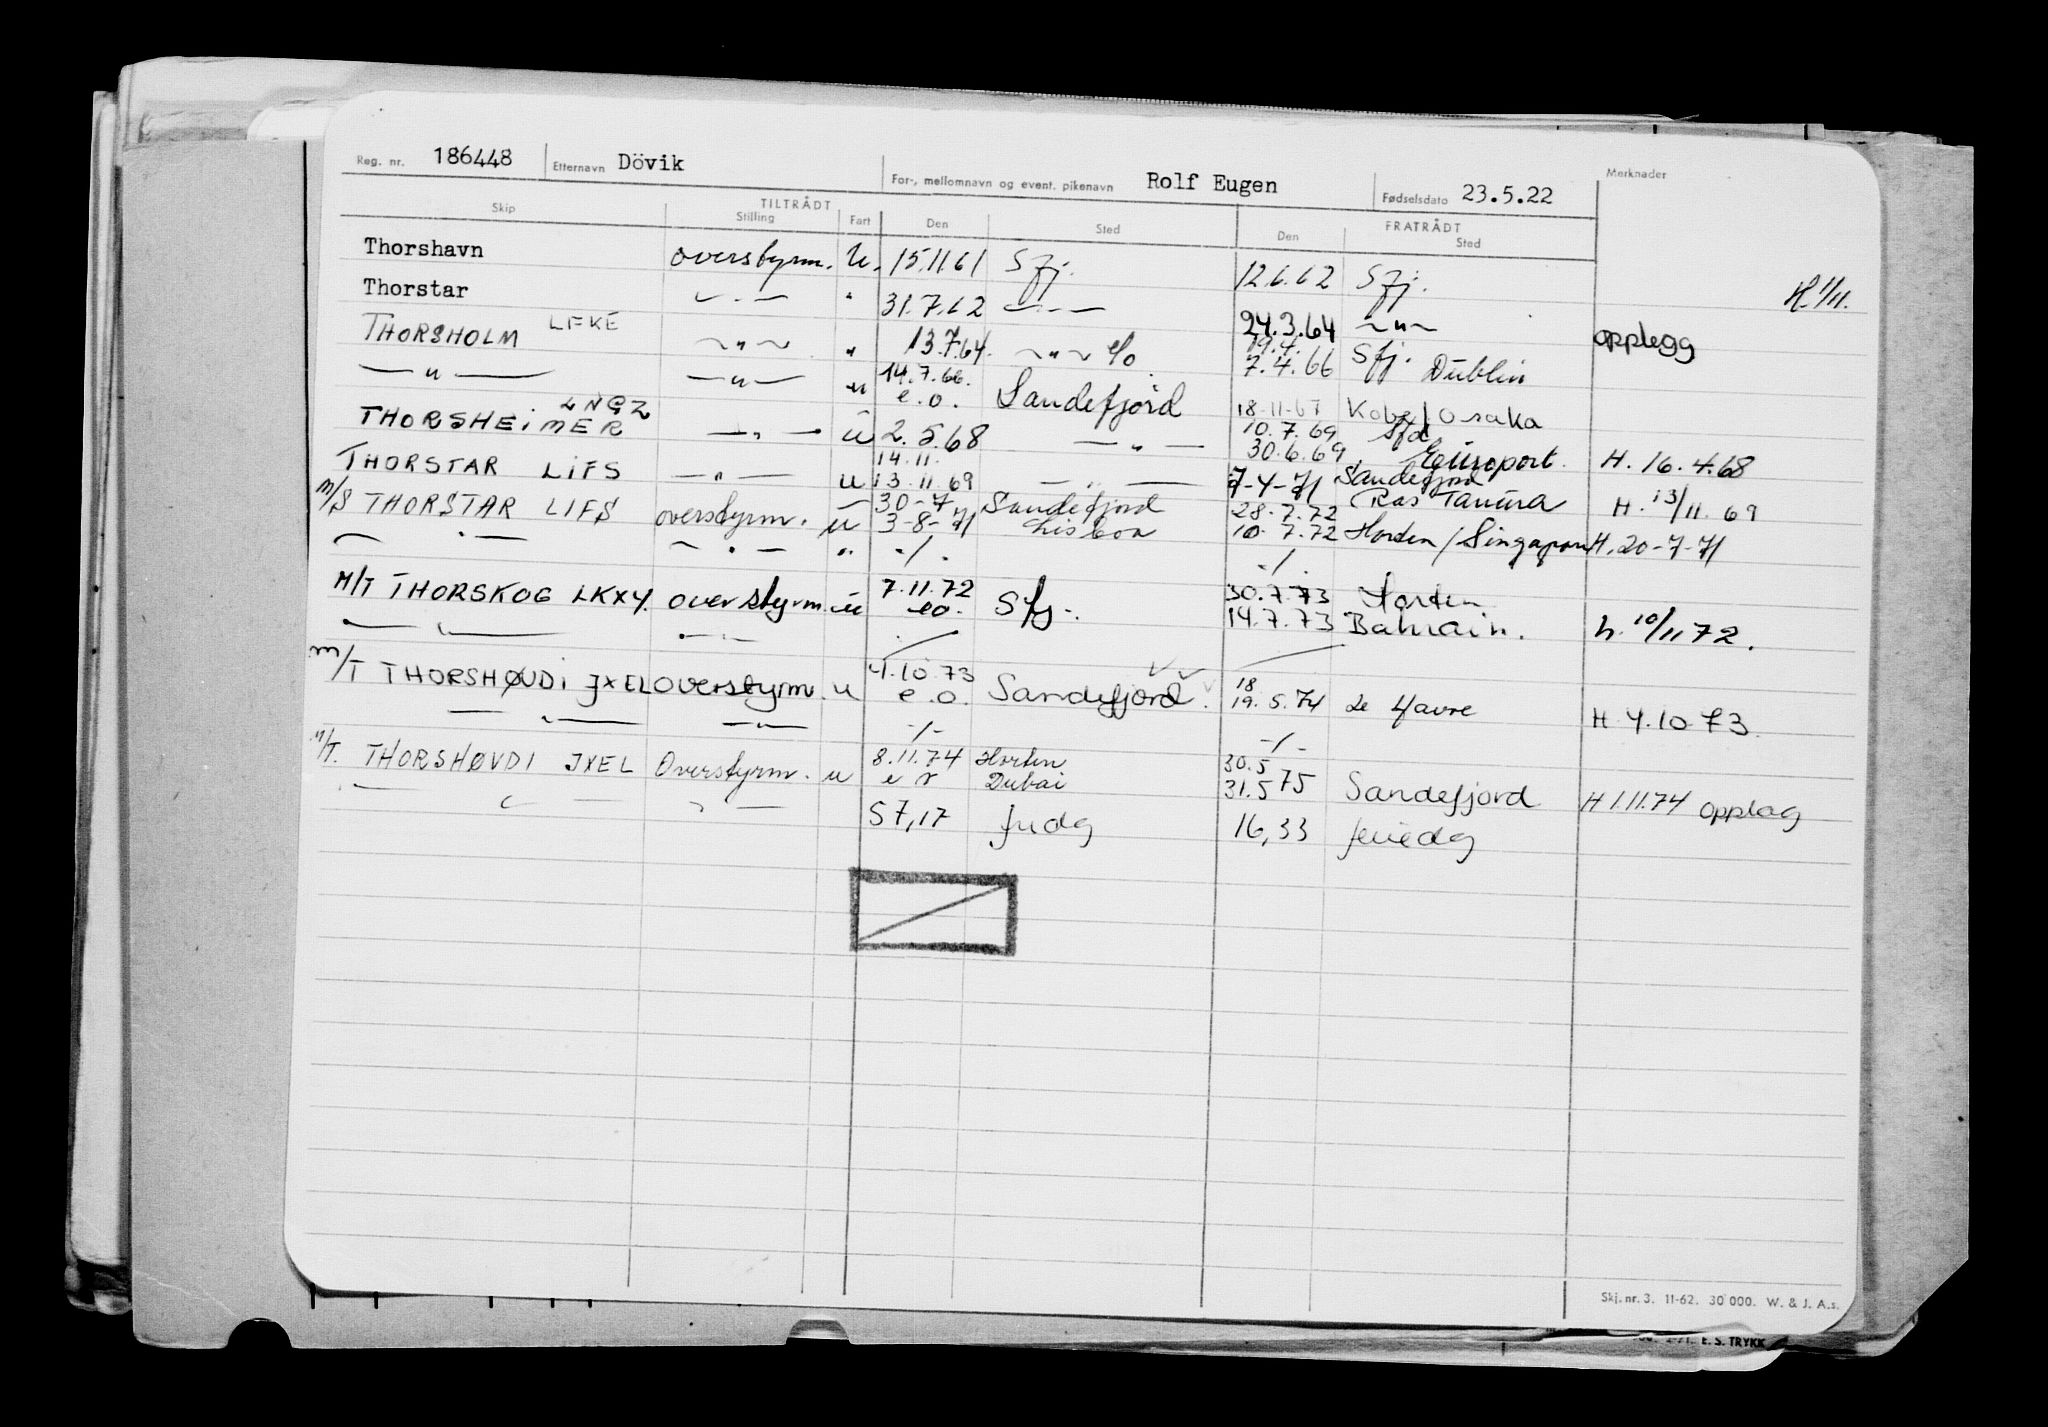 Reg. nr. 186448 Etternavn Dövik For-, mellomnavn og event. pikenavn Rolf Eugen Fødselsdato 23.5.22 Merknader
TILTRÅDT FRATRÅDT
Skip Stilling Fart Den Sted Den Sted
Thorshavn overstyrm. u. 15.11.61 Sfj. 12.6.62 Sfj. H. 1/11.
Thorstar — . — " 31.7.62 — " — 24.3.64 — " — opplegg
THORSHOLM LFKE — " — " 13.7.64. — " — e/o 19.4. 7.4.66 Sfj. Dublin
— " — — " — u 14.7.66. e.o. Sandefjord 18-11-67 Kobe/Osaka
THORSHEiMER LNGZ — " — u 2.5.68 — " — 10.7.69 Sfd 30.6.69 Europort. H. 16.4.68
THORSTAR LiFS — " — u 14.11. 13.11.69 — " — 7-4-71 Sandefjord Ras Tanura H. 13/11.69
M/S THORSTAR LIFS overstyrm. u 30-7 3-8-71 Sandefjord Lisboa 28.7.72 10.7.72 Horten/Singapore H. 20-7-71
— " — — " — " -/- -/-
M/T THORSKOG LKXY. overstyrm. u 7.11.72 eo. Sfj. 30.7.73 Horten 14.7.73 Bahrain. h. 10/11 72.
— " — — " —
M/T THORSHØVDi JXEL overstyrm. u 4.10.73 e.o. Sandefjord. 18 19.5.74 Le Havre H 4.10.73.
— " — — " — -/- -/-
M/T. THORSHØVDI JXEL Overstyrm. u 8.11.74 Horten Dubai 30.5 31.5 75 Sandefjord H 1.11.74 opplag
— " — — " — 57,17 fridg 16,33 feriedg
Skj. nr. 3. 11-62. 30 000. W. & J. A.s.
E. S. TRYKK